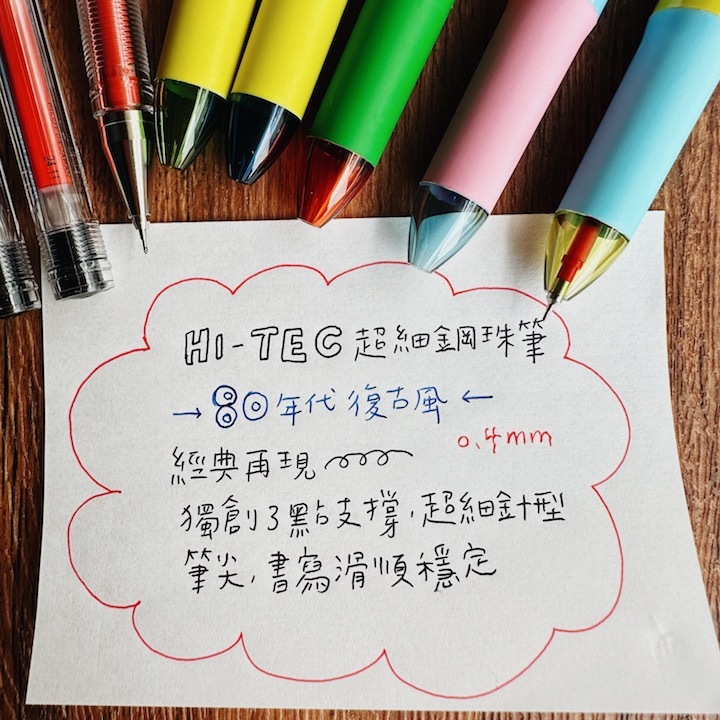 HI-TEC 超細鋼珠筆
→ 80年代 復古風 ←
0.4mm
經典再現
獨創3點支撐,超細針型
筆尖,書寫滑順穩定